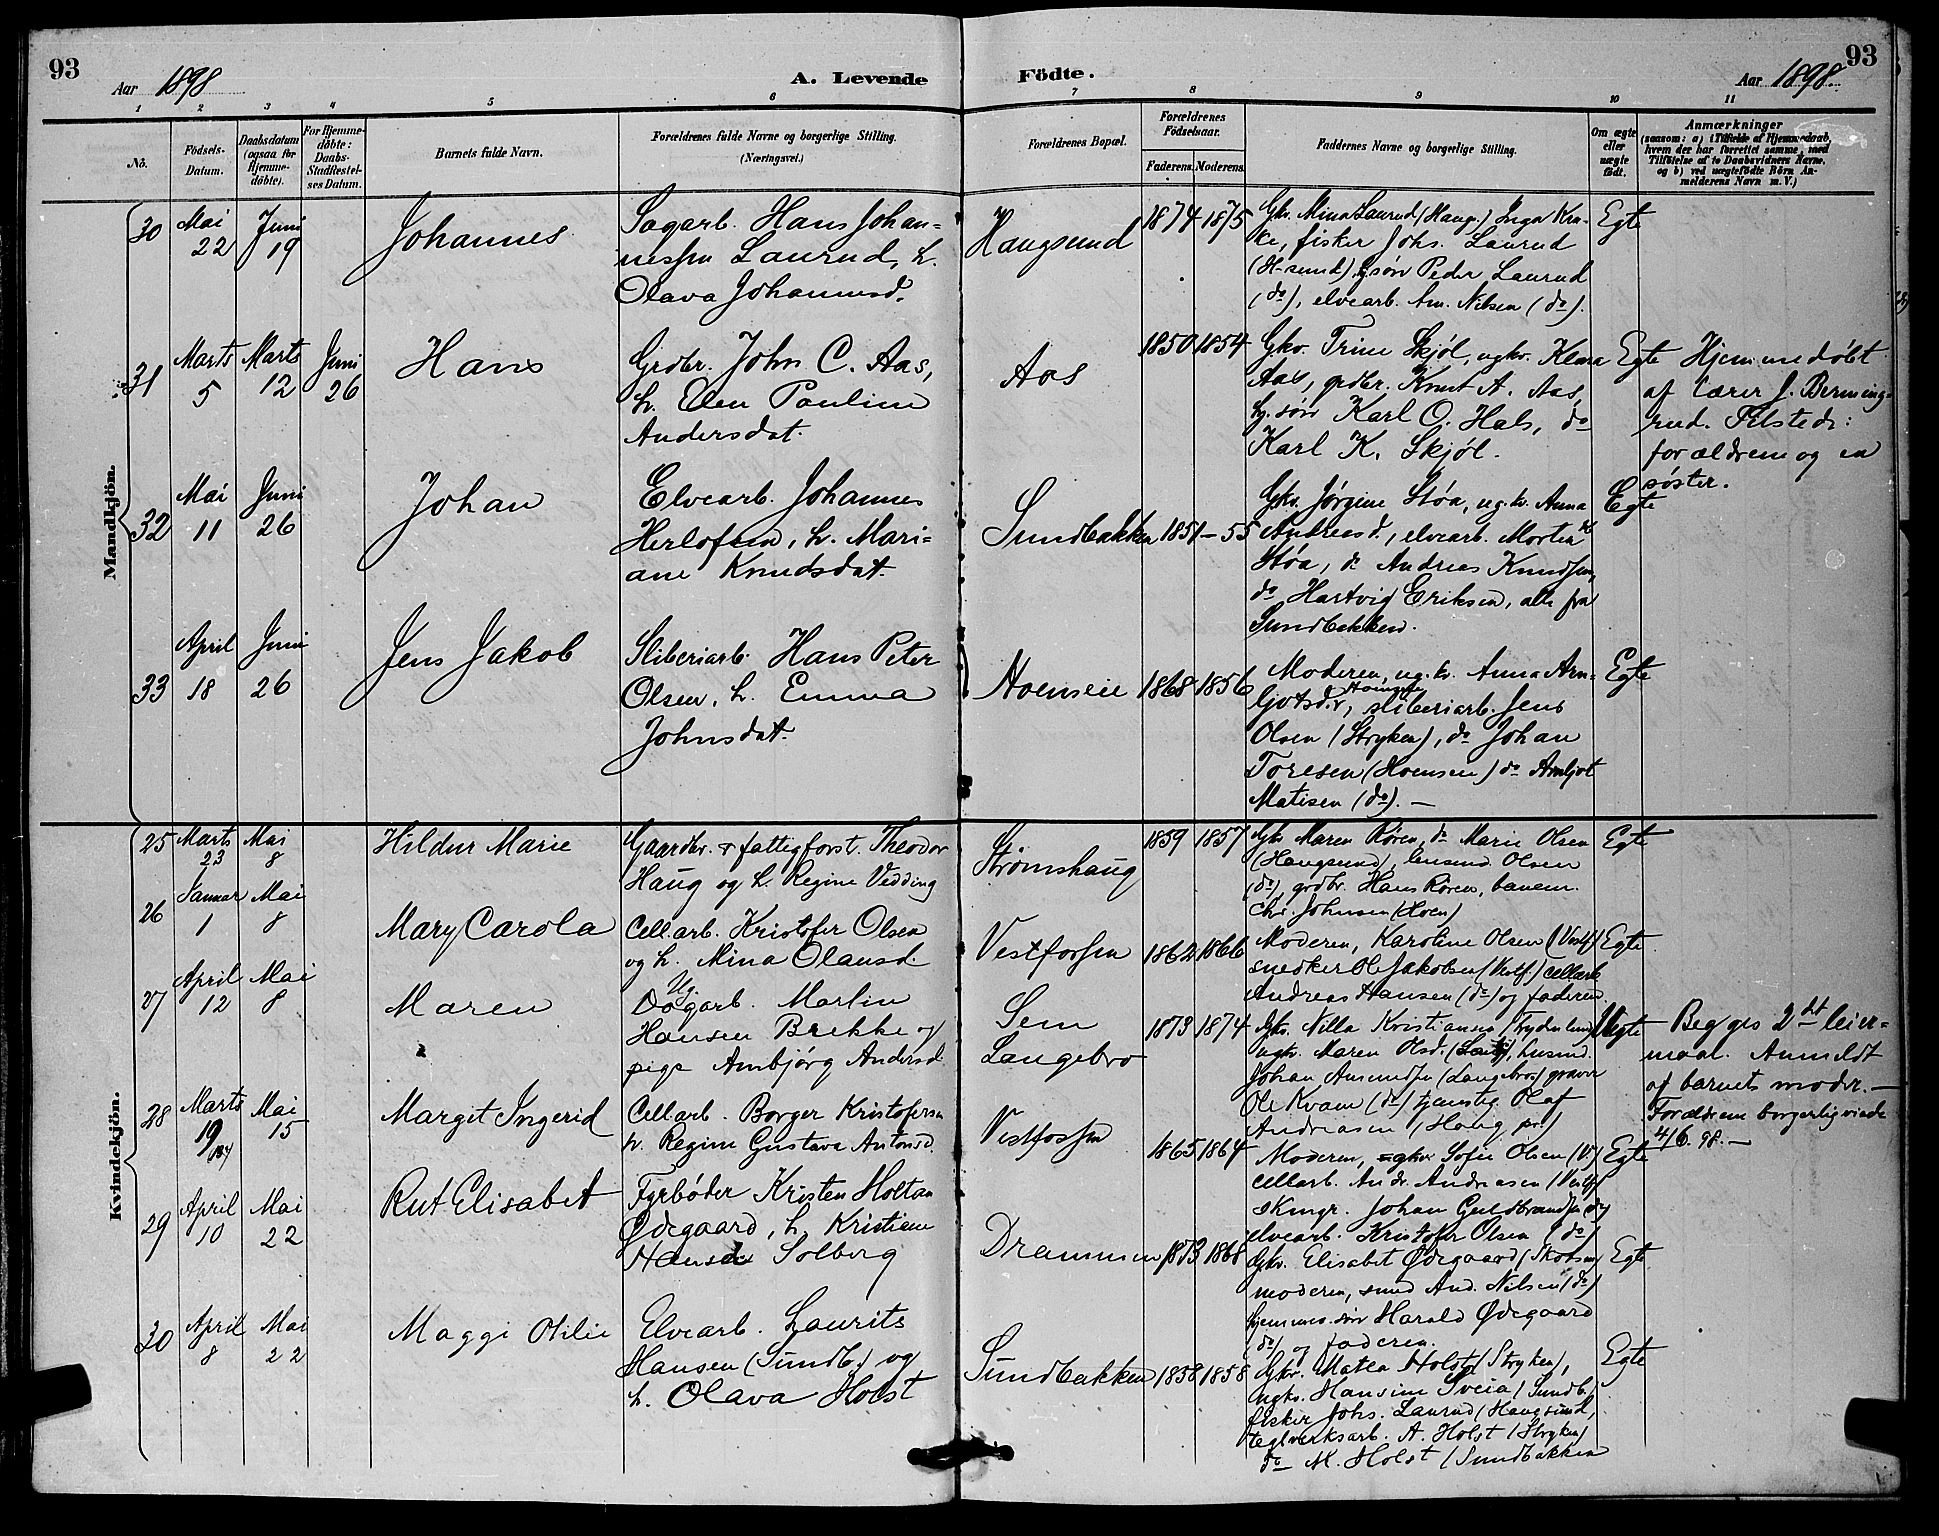 93
Aar 1898
A. Levende Födte.
93
Aar 1898.
1 2 3 4 5 6 7 8 9 10 11
No.
Födsels-
Datum.
Daabsdatum
(ogsaa for
Hjemme-
döbte).
For Hjemme-
döbte:
Daabs-
Stadfæstel-
ses Datum.
Barnets fulde Navn.
Forældrenes fulde Navne og borgerlige Stilling.
(Næringsvei.)
Forældrenes Bopæl.
Forældrenes
Födselsaar.
Faderens. Moderens.
Faddernes Navne og borgerlige Stilling.
Om ægte
eller
uægte
födt.
Anmærkninger
(saasom: a) i Tilfælde af Hjemmedaab,
hvem der har forrettet samme, med
Tilföielse af to Daabsvidners Navne,
og b) ved uægtefödte Börn An-
melderens Navn m. V.)
Mandkjön.
30 Mai 22 Juni 19
Johannes
Sagarb. Hans Johan-
nessen Laurud, h.
Olava Johannesd.
Haugsund
1874 1875
Gkv. Mina Laurud (Haugs.) Inga Kra-
ke, fisker Johs. Laurud
(H-sund) Gsøn Peder Laurud
(do), elvearb. Am. Nilsen (do).
Egte
31 Marts 5 Marts 12 Juni 26
Hans
Grdbr. John C. Aas,
h. Elen Pauline
Andersdat.
Aas
1850 1854
Gkv. Trine Skjøl, ugkv. Klara
Aas, grdbr. Knut A. Aas,
G.søn Karl O. Hals, do
Karl K. Skjøl.
Egte
Hjemmedøbt
af lærer J. Berming-
rud. Tilstede:
forældrene og en
søster.
32 Mai 11 Juni 26
Johan
Elvearb. Johannes
Herlofsen, h. Mari-
ane Knudsdat.
Sundbakken 1851-55
Gkv. Jørgine Støa, ug.kv. Anna
Andreasd., elvearb. Morten
Støa, do Andreas Knudsen,
do Hartvig Eriksen, alle fra
Sundbakken.
Egte
33 April 18 Juni 26
Jens Jakob
Sliberiarb. Hans Peter
Olsen, h. Emma
Johnsdat.
Hoenseie
1868 1856
Moderen, ug.kv. Anna Arn-
ljotsd., sliberiarb. Jens
Olsen (Stryken), do Johan
Toresen (Hoensen) do Arnljot
Matisen (do). —
Egte
Kvindekjön.
25 Marts 23 Mai 8
Hildur Marie
Gaardbr. & fattigforst. Theodor
Haug og h. Regine Vedding
Strømshaug
1859 1857
Gkv. Maren Røren, do Marie Olsen
(Haugsund), lensmd Olsen
(do), grdbr. Hans Røren, banem.
Chr. Johnsen (Hoen)
Egte
26 Januar 1 Mai 8
Mary Carola
Cell.arb. Kristofer Olsen
og h. Mina Olausd.
Vestfossen
1862 1866
Moderen, Karoline Olsen (Vestf)
snedker Ole Jakobsen (Vestf.) cellarb
Andreas Hansen (do) og faderen.
Egte
27 April 12 Mai 8
Maren
Ug.
Dagarb. Martin
Hansen Brekke og
pige Ambjørg Andersd.
Sem
Langebro
1873 1874
Gkv. Nilla Kristiansen
ugkv. Maren Olsd. husmd.
Johan Amundsen (Langebro) graver
Ole Kvam (do) tjenstg. Olaf
Andreasen (Haug pr)
Uegte
Begges 2det leier-
maal. Anmeldt
af barnets moder. —
Forældrene borgerlig viede
4/6. 98. —
28 Marts 19 Mai 15
Margit Ingerid
Cellarb. Borger Kristofersen
h. Regine Gustava Antonsd.
Vestfossen
1865 1864
Moderen, Sofie Olsen (V)
cellarb. Andr. Andreasen (Vestf
skmgr. Johan Guldbrandsen do
elvearb. Kristofer Olsen (do)
Egte
29 April 10 Mai 22
Rut Elisabet
Fyrbøder Kristen Holtan
Ødegaard, h. Kristiane
Hansen Solberg
Drammen 1873 1868
Gkv. Elisabet Ødegaard (Skotsm)
moderen, smed And. Nilsen (do)
hjemmes. søn Harald Ødegaard
(do) og faderen.
Egte
30 April 8 Mai 22
Maggi Otilie
Elvearb. Laurits
Hansen (Sundb.) og
h. Olava Holst
Sundbakken 1858 1858
Gkv. Matea Holst (Stryken),
ugkv. Hansine Sveia (Sundb.
fisker Johs. Laurud (Haugsund,
teglverksarb. A. Holst (Stryken)
do M. Holst (Sundbakken
Egte